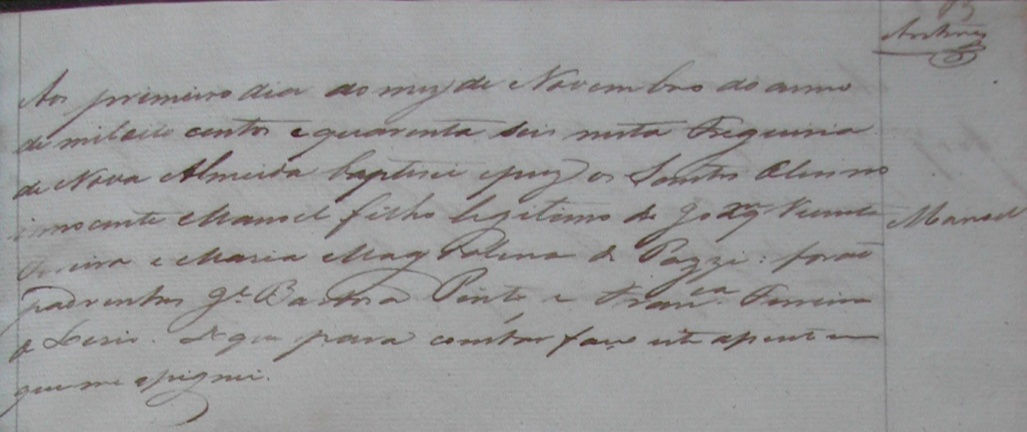 Aos primeiro dia do mez de Novembro do anno
de mil oito centos e quarenta seis nesta Freguisia
de Nova Almeida baptisei e puz os Santos Oleos no
innocente Manoel filho legitimo de Vicente
e Maria Magdalena de Pazzi: foraõ
padrinhos Pinto e Fran.ca Ferreira
de que para constar faço este acento em
que me assignei.
Manoel